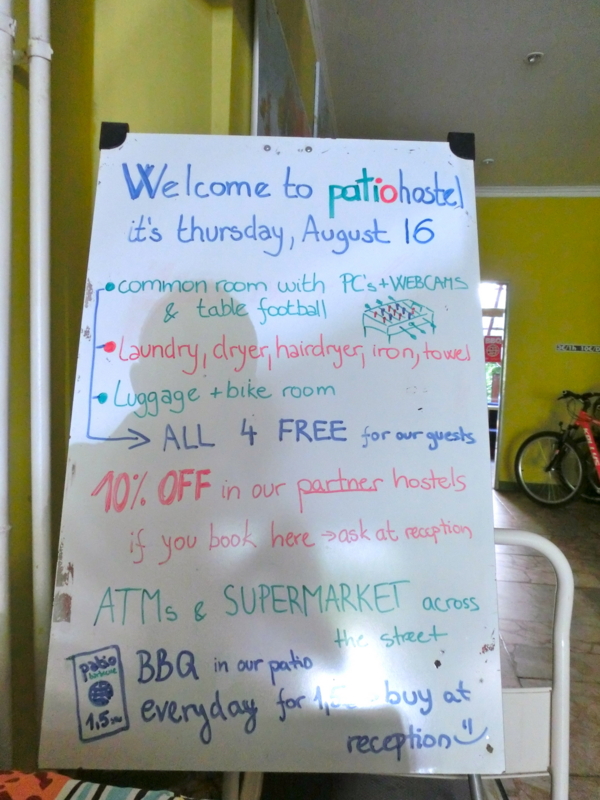 Welcome to patiohostel
it's thursday, August 16
• common room with PC's + WEBCAMS
& table football
• Laundry, dryer, hairdryer, iron, towel
• Luggage + bike room
→ ALL 4 FREE for our guests
10% OFF in our partner hostels
if you book here → ask at reception
ATMs & SUPERMARKET across
the street
BBQ in our patio
everyday for buy at
reception
patio
1.5